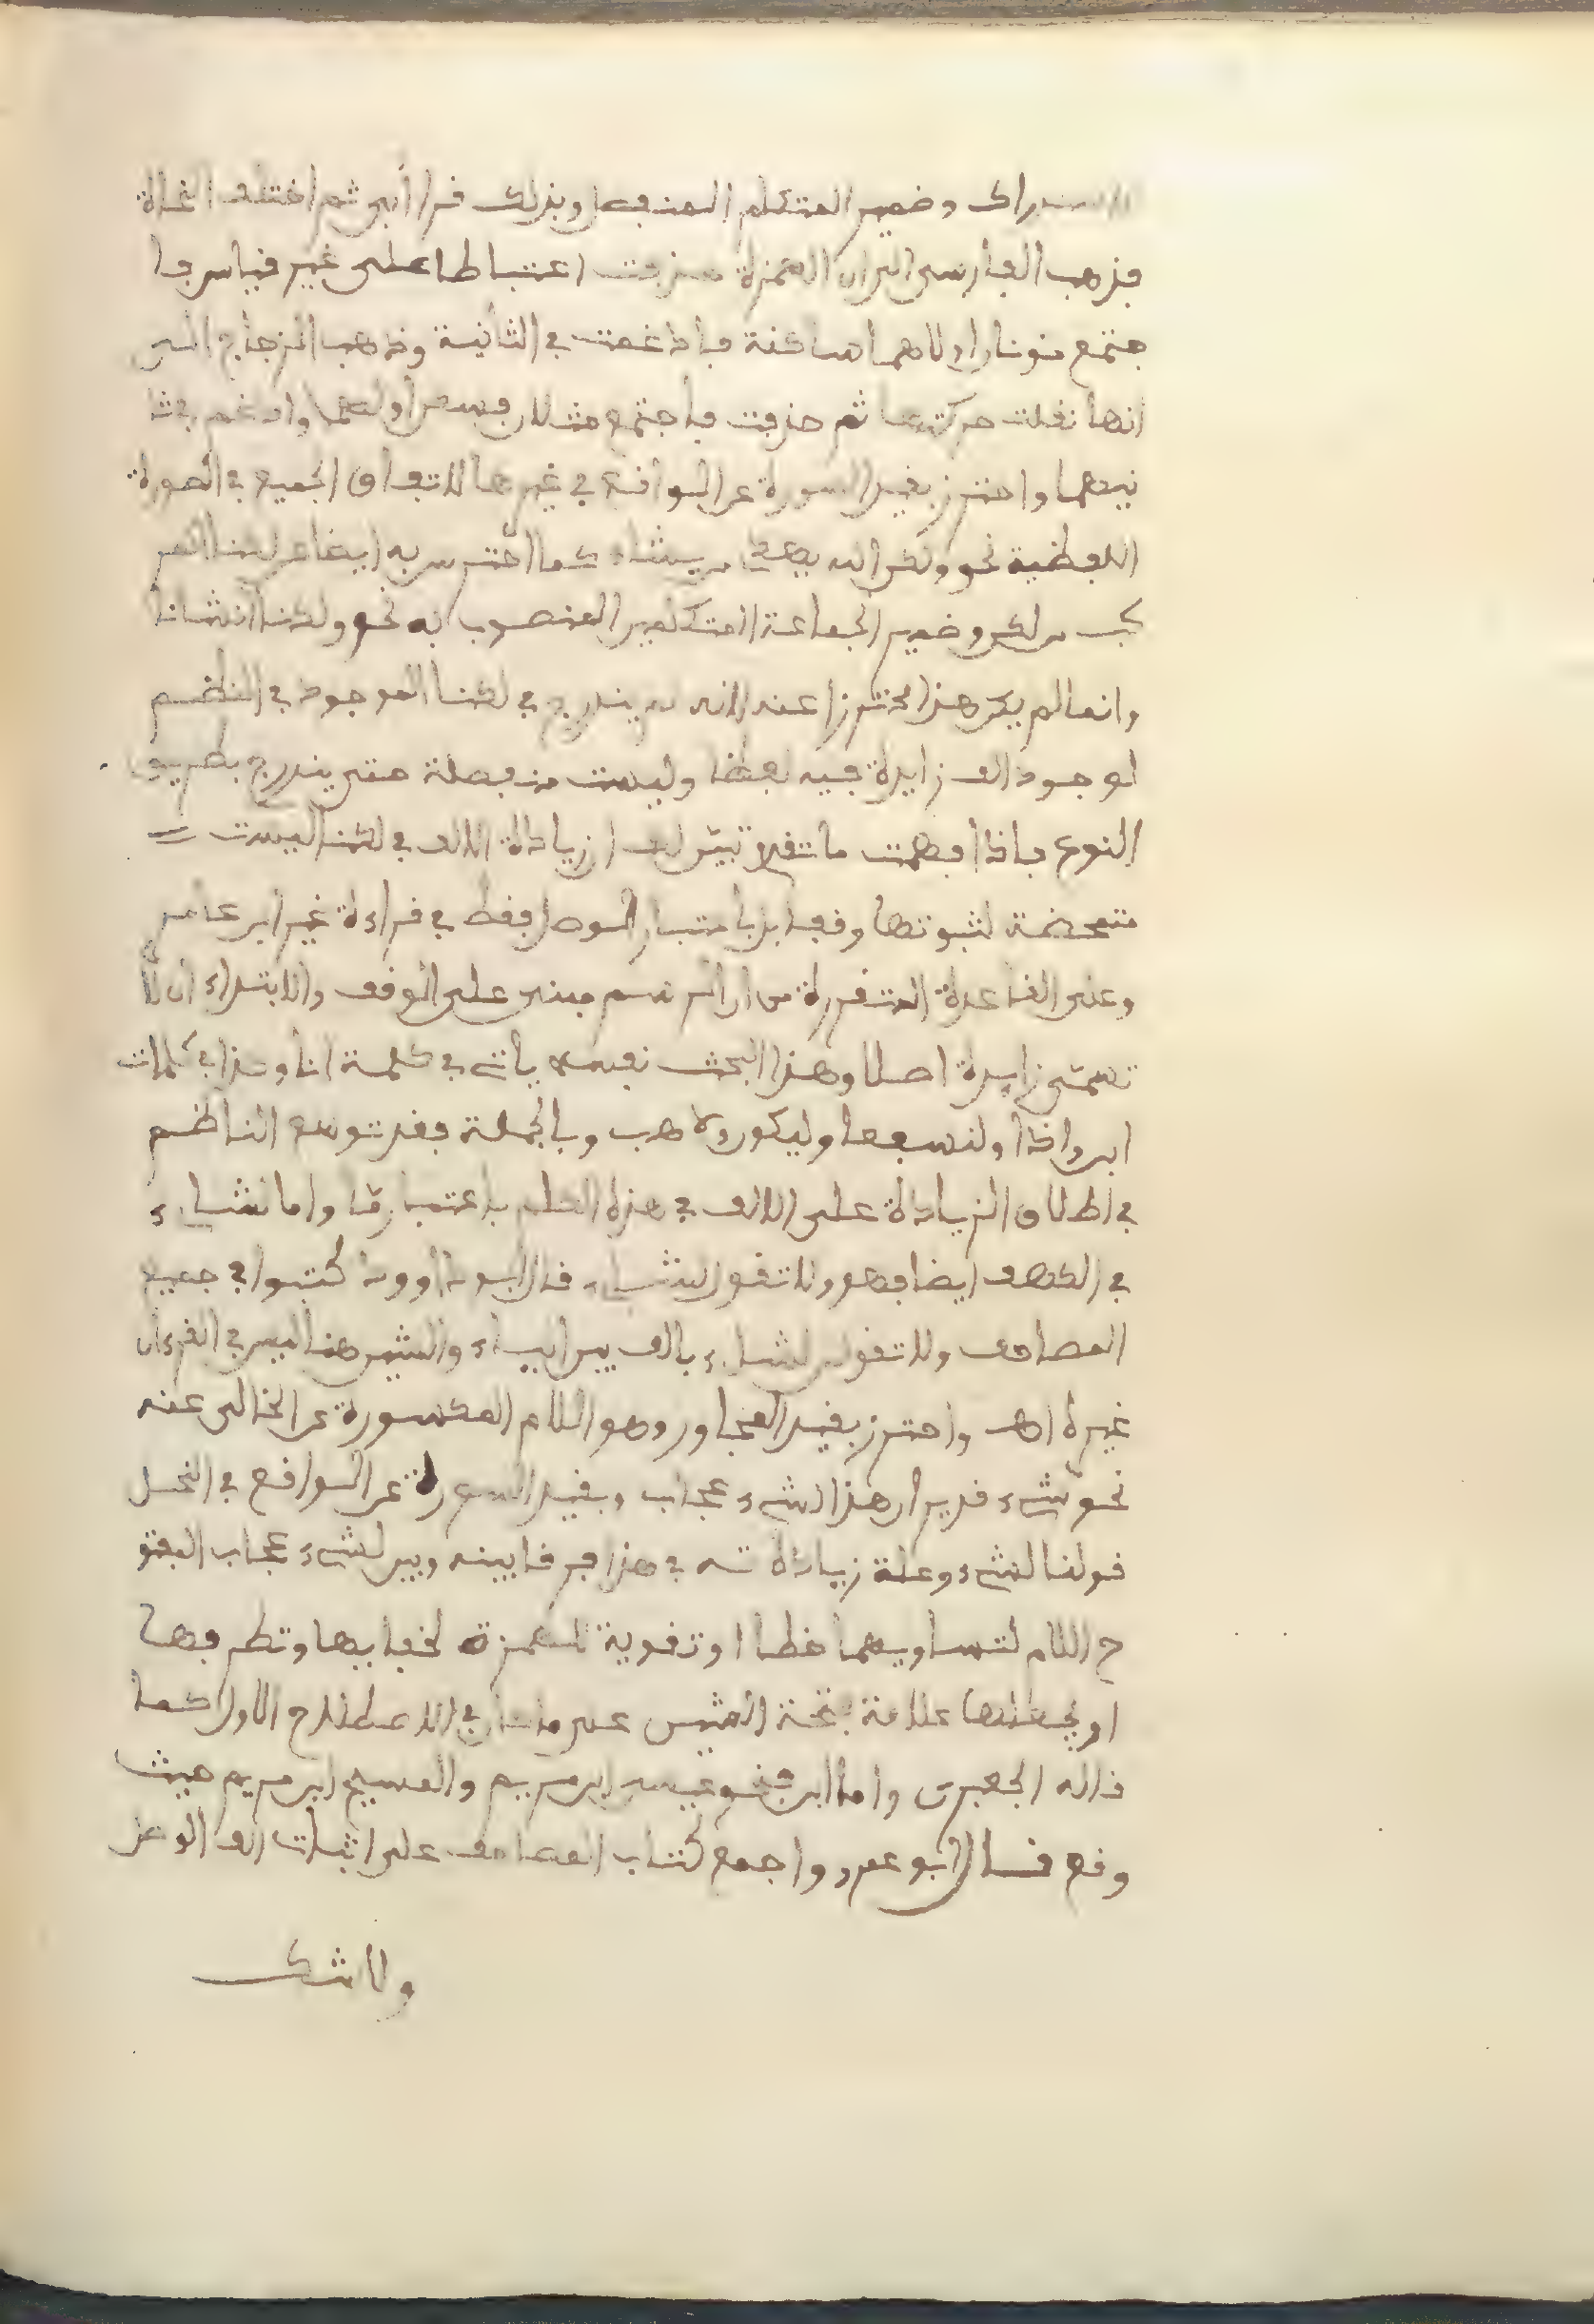 الاستدراك وضمير المتكلم المنفصل وبذلك قرأ أبي ثم اختلف النحاة
فذهب الفارسي الى ان الهمزة حذفت اعتباطا على غير قياس فا
جتمع نونان اولاهما ساكنة فادغمت في الثانية وذهب الزجاج الى
انها نقلت حركتها ثم حذفت فاجتمع مثلان فسكن أولهما وادغم في ثا
نيهما واحترز بقيد السورة عن الواقع في غيرها لاتفاق الجميع في الصورة
اللفظية نحو ولكن الله يهدي من يشاء كما احترس به ايضا عن لكنا المر
كب من لكن وضمير الجماعة المتكلمين المنصوب به نحو ولكنا أنشأنا
وانما لم يكن هذا محترزا عنه لانه لم يندرج في لكنا الموجود في النظم
لوجود الف زايدة فيه لفظا وليست منفصلة حتى يندرج بطريق
النوع فاذا فهمت ما تقرر تبين لك ان زيادة الالف في لكنا ليست
متمحضة لثبوتها وقفا بل باعتبار الوصل فقط في قراءة غير ابن عامر
وعلى القاعدة المتقررة من ان الرسم مبني على الوقف والابتداء ان لا
تسمى زايدة اصلا وهذا البحث نفسه يأتي في كلمة انا وكذا في كلمات
ابن واذا ولنسفعا وليكونا ولاهب وبالجملة فقد توسع الناظم
في اطلاق الزيادة على الالف في هذه الكلم باعتبار ما واما لشاىء
في الكهف ايضا فهو ولا تقولن لشاىء قال ابو داوود كتبوا في جميع
المصاحف ولا تقولن لشاىء بالف بين الياء والشين هنا ليس في القرءان
غيره اهـ واحترز بقيد المجاور وهو اللام المكسورة عن الخالي عنه
نحو شيء قدير ان هذا لشيء عجاب وبقيد السورة عن الواقع في النحل
قولنا لشيء وعلة زيادته في هذا فرقا بينه وبين لشيء عجاب المفتو
ح اللام لتساويهما خطا او تقوية للهمزة لخفايها وتطرفها
او بجعلها علامة فتحة الشين على ما كان في الاصطلاح الاول كما
قاله الجعبري واما ابن فنحو عيسى ابن مريم والمسيح ابن مريم حيث
وقع قال أبو عمرو واجمع كتاب المصاحف على اثبات الف الوصل
ولا شك